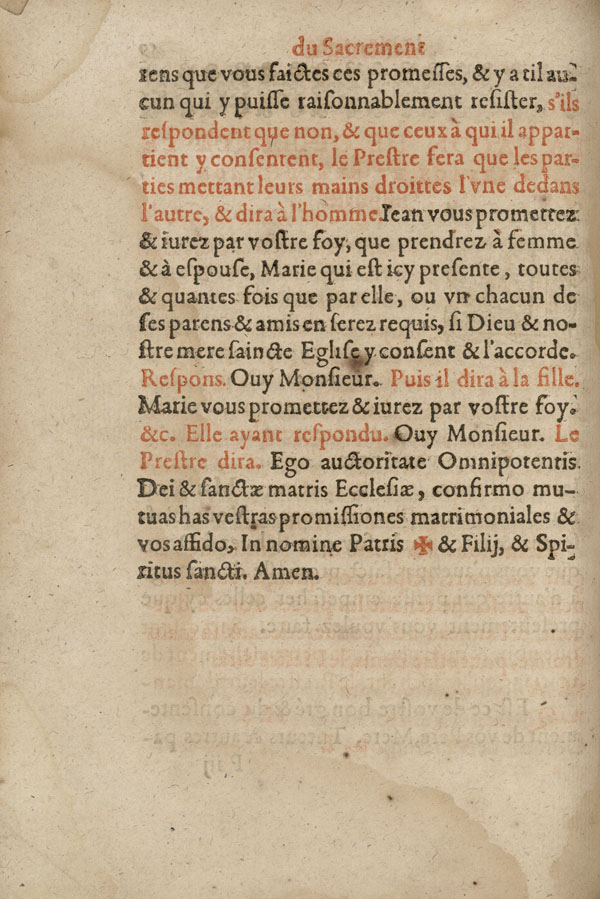 du Sacrement
rens que vous faictes ces promesses, & y a til au-
cun qui y puisse raisonnablement resister, s'ils
respondent que non, & que ceux à qui il appar-
tient y consentent, le Prestre fera que les par-
ties mettant leurs mains droittes l'vne dedans
l'autre, & dira à l'homme. Iean vous promettez
& iurez par vostre foy, que prendrez à femme
& à espouse, Marie qui est icy presente, toutes
& quantes fois que par elle, ou vn chacun de
ses parens & amis en serez requis, si Dieu & no-
stre mere saincte Eglise y consent & l'accorde.
Respons. Ouy Monsieur. Puis il dira à la fille.
Marie vous promettez & iurez par vostre foy.
&c. Elle ayant respondu. Ouy Monsieur. Le
Prestre dira. Ego auctoritate Omnipotentis.
Dei & sanctæ matris Ecclesiæ, confirmo mu-
tuas has vestras promissiones matrimoniales &
vos affido, In nomine Patris ✠ & Filij, & Spi-
ritus sancti. Amen.